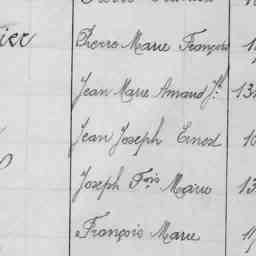 ier Pierre Marie François 1
Jean Marie Amand Jh 13
Jean Joseph Ernest 10
Joseph Fois Marie 13
François Marie 1